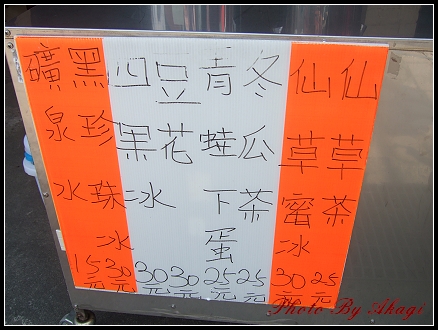 仙草茶25元
仙草蜜冰30元
冬瓜茶25元
青蛙下蛋25元
豆花30元
四果冰30元
黑珍珠冰30元
礦泉水15元
Photo By Akagi